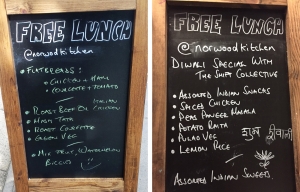 FREE LUNCH
@norwoodkitchen
• FLATBREADS:
• CHICKEN + HAM
• COURGETTE + TOMATO
• ROAST BEEF OR ITALIAN CHICKEN
• MASH TATA
• ROAST COURGETTE
• GREEN VEG
• MIX FRUIT, WATERMELON
BICCIES
FREE LUNCH
@norwoodkitchen
DIWALI SPECIAL WITH
THE SHIFT COLLECTIVE
• ASSORTED INDIAN SNACKS
• SPICED CHICKEN
• PEAS PANEER MASALA
• POTATO RAITA
• PULAO VEG
• LEMON RICE
शुभ
ASSORTED INDIAN SWEETS